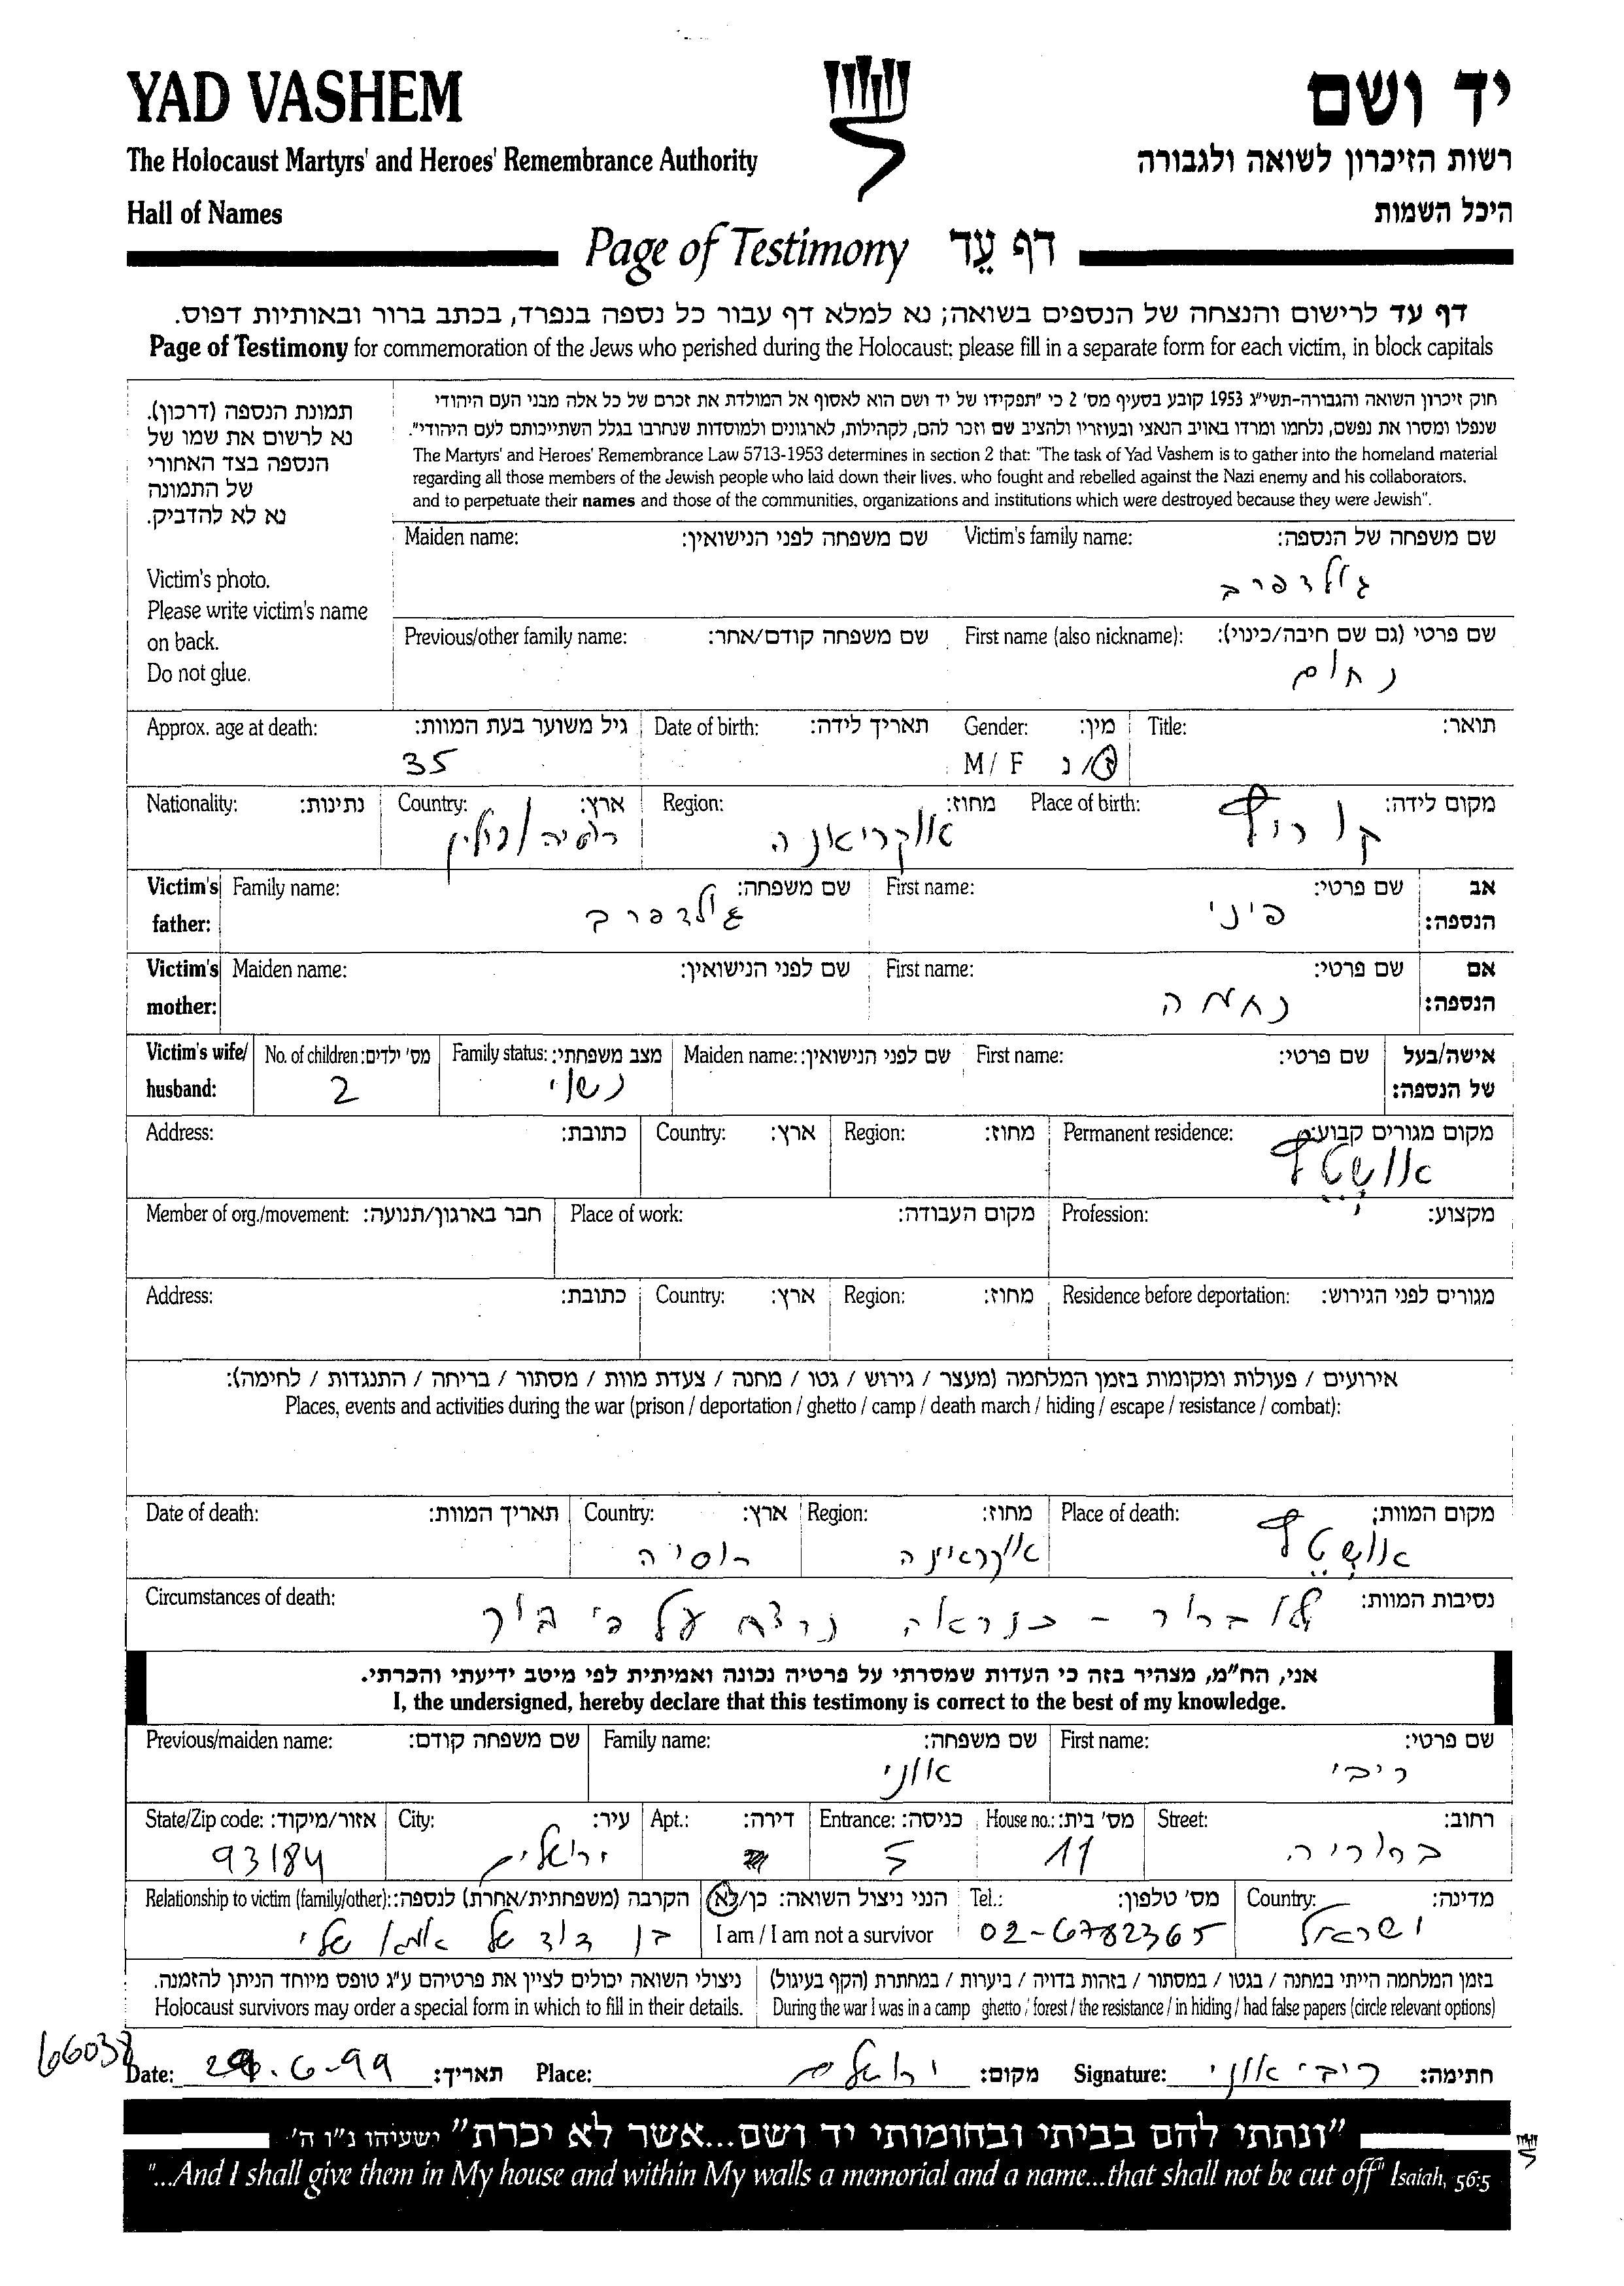 YAD VASHEM
יד ושם
The Holocaust Martyrs' and Heroes' Remembrance Authority
רשות הזיכרון לשואה ולגבורה
Hall of Names
היכל השמות
Page of Testimony דף עֵד
דף עד לרישום והנצחה של הנספים בשואה; נא למלא דף עבור כל נספה בנפרד, בכתב ברור ובאותיות דפוס.
Page of Testimony for commemoration of the Jews who perished during the Holocaust; please fill in a separate form for each victim, in block capitals
תמונת הנספה (דרכון).
נא לרשום את שמו של
הנספה בצד האחורי
של התמונה
נא לא להדביק.
Victim's photo.
Please write victim's name
on back.
Do not glue.
חוק זיכרון השואה והגבורה-תשי"ג 1953 קובע בסעיף מס' 2 כי "תפקידו של יד ושם הוא לאסוף אל המולדת את זכרם של כל אלה מבני העם היהודי
שנפלו ומסרו את נפשם, נלחמו ומרדו באויב הנאצי ובעוזריו ולהציב שם וזכר להם, לקהילות, לארגונים ולמוסדות שנחרבו בגלל השתייכותם לעם היהודי".
The Martyrs' and Heroes' Remembrance Law 5713-1953 determines in section 2 that: "The task of Yad Vashem is to gather into the homeland material
regarding all those members of the Jewish people who laid down their lives, who fought and rebelled against the Nazi enemy and his collaborators,
and to perpetuate their names and those of the communities, organizations and institutions which were destroyed because they were Jewish".
Maiden name: שם משפחה לפני הנישואין: Victim's family name: שם משפחה של הנספה:
גולדפרב
Previous/other family name: שם משפחה קודם/אחר: First name (also nickname): שם פרטי (גם שם חיבה/כינוי):
נחום
Approx. age at death: גיל משוער בעת המוות: Date of birth: תאריך לידה: Gender: מין: Title: תואר:
35 M/ F ז/נ
Nationality: נתינות: Country: ארץ: Region: מחוז: Place of birth: מקום לידה:
רוסיה/פולין אוקריאנה קוריץ
Victim's father: Family name: שם משפחה: First name: שם פרטי: אב הנספה:
גולדפרב פיני
Victim's mother: Maiden name: שם לפני הנישואין: First name: שם פרטי: אם הנספה:
נחמה
Victim's wife/ husband: No. of children: מס' ילדים: Family status: מצב משפחתי: Maiden name: שם לפני הנישואין: First name: שם פרטי: אישה/בעל של הנספה:
2 נשוי
Address: כתובת: Country: ארץ: Region: מחוז: Permanent residence: מקום מגורים קבוע:
Member of org./movement: חבר בארגון/תנועה: Place of work: מקום העבודה: Profession: מקצוע:
Address: כתובת: Country: ארץ: Region: מחוז: Residence before deportation: מגורים לפני הגירוש:
אירועים / פעולות ומקומות בזמן המלחמה (מעצר / גירוש / גטו / מחנה / צעדת מוות / מסתור / בריחה / התנגדות / לחימה):
Places, events and activities during the war (prison / deportation / ghetto / camp / death march / hiding / escape / resistance / combat):
Date of death: תאריך המוות: Country: ארץ: Region: מחוז: Place of death: מקום המוות:
רוסיה אוקראינה
Circumstances of death: נסיבות המוות:
לא ברור - כנראה נרצח על פי בור
אני, הח"מ, מצהיר בזה כי העדות שמסרתי על פרטיה נכונה ואמיתית לפי מיטב ידיעתי והכרתי.
I, the undersigned, hereby declare that this testimony is correct to the best of my knowledge.
Previous/maiden name: שם משפחה קודם: Family name: שם משפחה: First name: שם פרטי:
אוני ריבי
State/Zip code: אזור/מיקוד: City: עיר: Apt.: דירה: Entrance: כניסה: House no.: מס' בית: Street: רחוב:
93184 ירושלים 5 11 בתוריה
Relationship to victim (family/other): הקרבה (משפחתית/אחרת) לנספה: הנני ניצול השואה: כן/לא Tel.: מס' טלפון: Country: מדינה:
I am / I am not a survivor
בן דוד של אמא שלי 02-6782365 ישראל
ניצולי השואה יכולים לציין את פרטיהם ע"ג טופס מיוחד הניתן להזמנה.
Holocaust survivors may order a special form in which to fill in their details.
בזמן המלחמה הייתי במחנה / בגטו / במסתור / בזהות בדויה / ביערות / במחתרת (הקף בעיגול)
During the war I was in a camp ghetto / forest / the resistance / in hiding / had false papers (circle relevant options)
66038
Date: תאריך: Place: ירושלים מקום: Signature: ריבי אוני חתימה:
"ונתתי להם בביתי ובחומותי יד ושם...אשר לא יכרת" ישעיהו נ"ו ה'
"...And I shall give them in My house and within My walls a memorial and a name...that shall not be cut off" Isaiah, 56:5